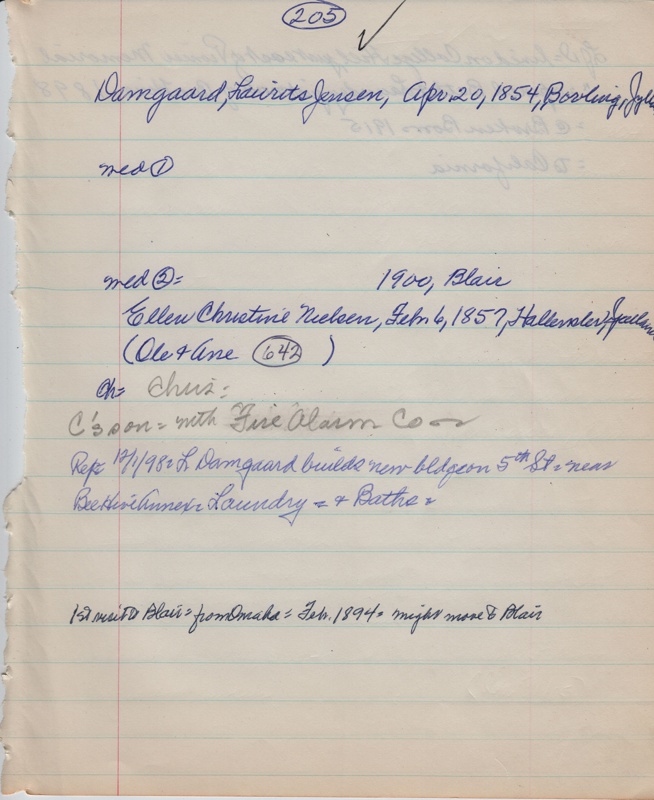 205
Damgaard, Laurits Jensen, Apr. 20, 1854, Bovling, Jyl
med ①
med ②= 1900, Blair
Ellen Christine Nielsen, Feb. 6, 1857,
(Ole & Ane 642 )
Ch= Chris:
C's son = with Fire Alarm Co
Rept 12/1/98= L Damgaard builds new bldg on 5th St = near
Bee Hive Annex = Laundry = & Baths =
1st visit to Blair = from Omaha = Feb. 1894 = might move to Blair